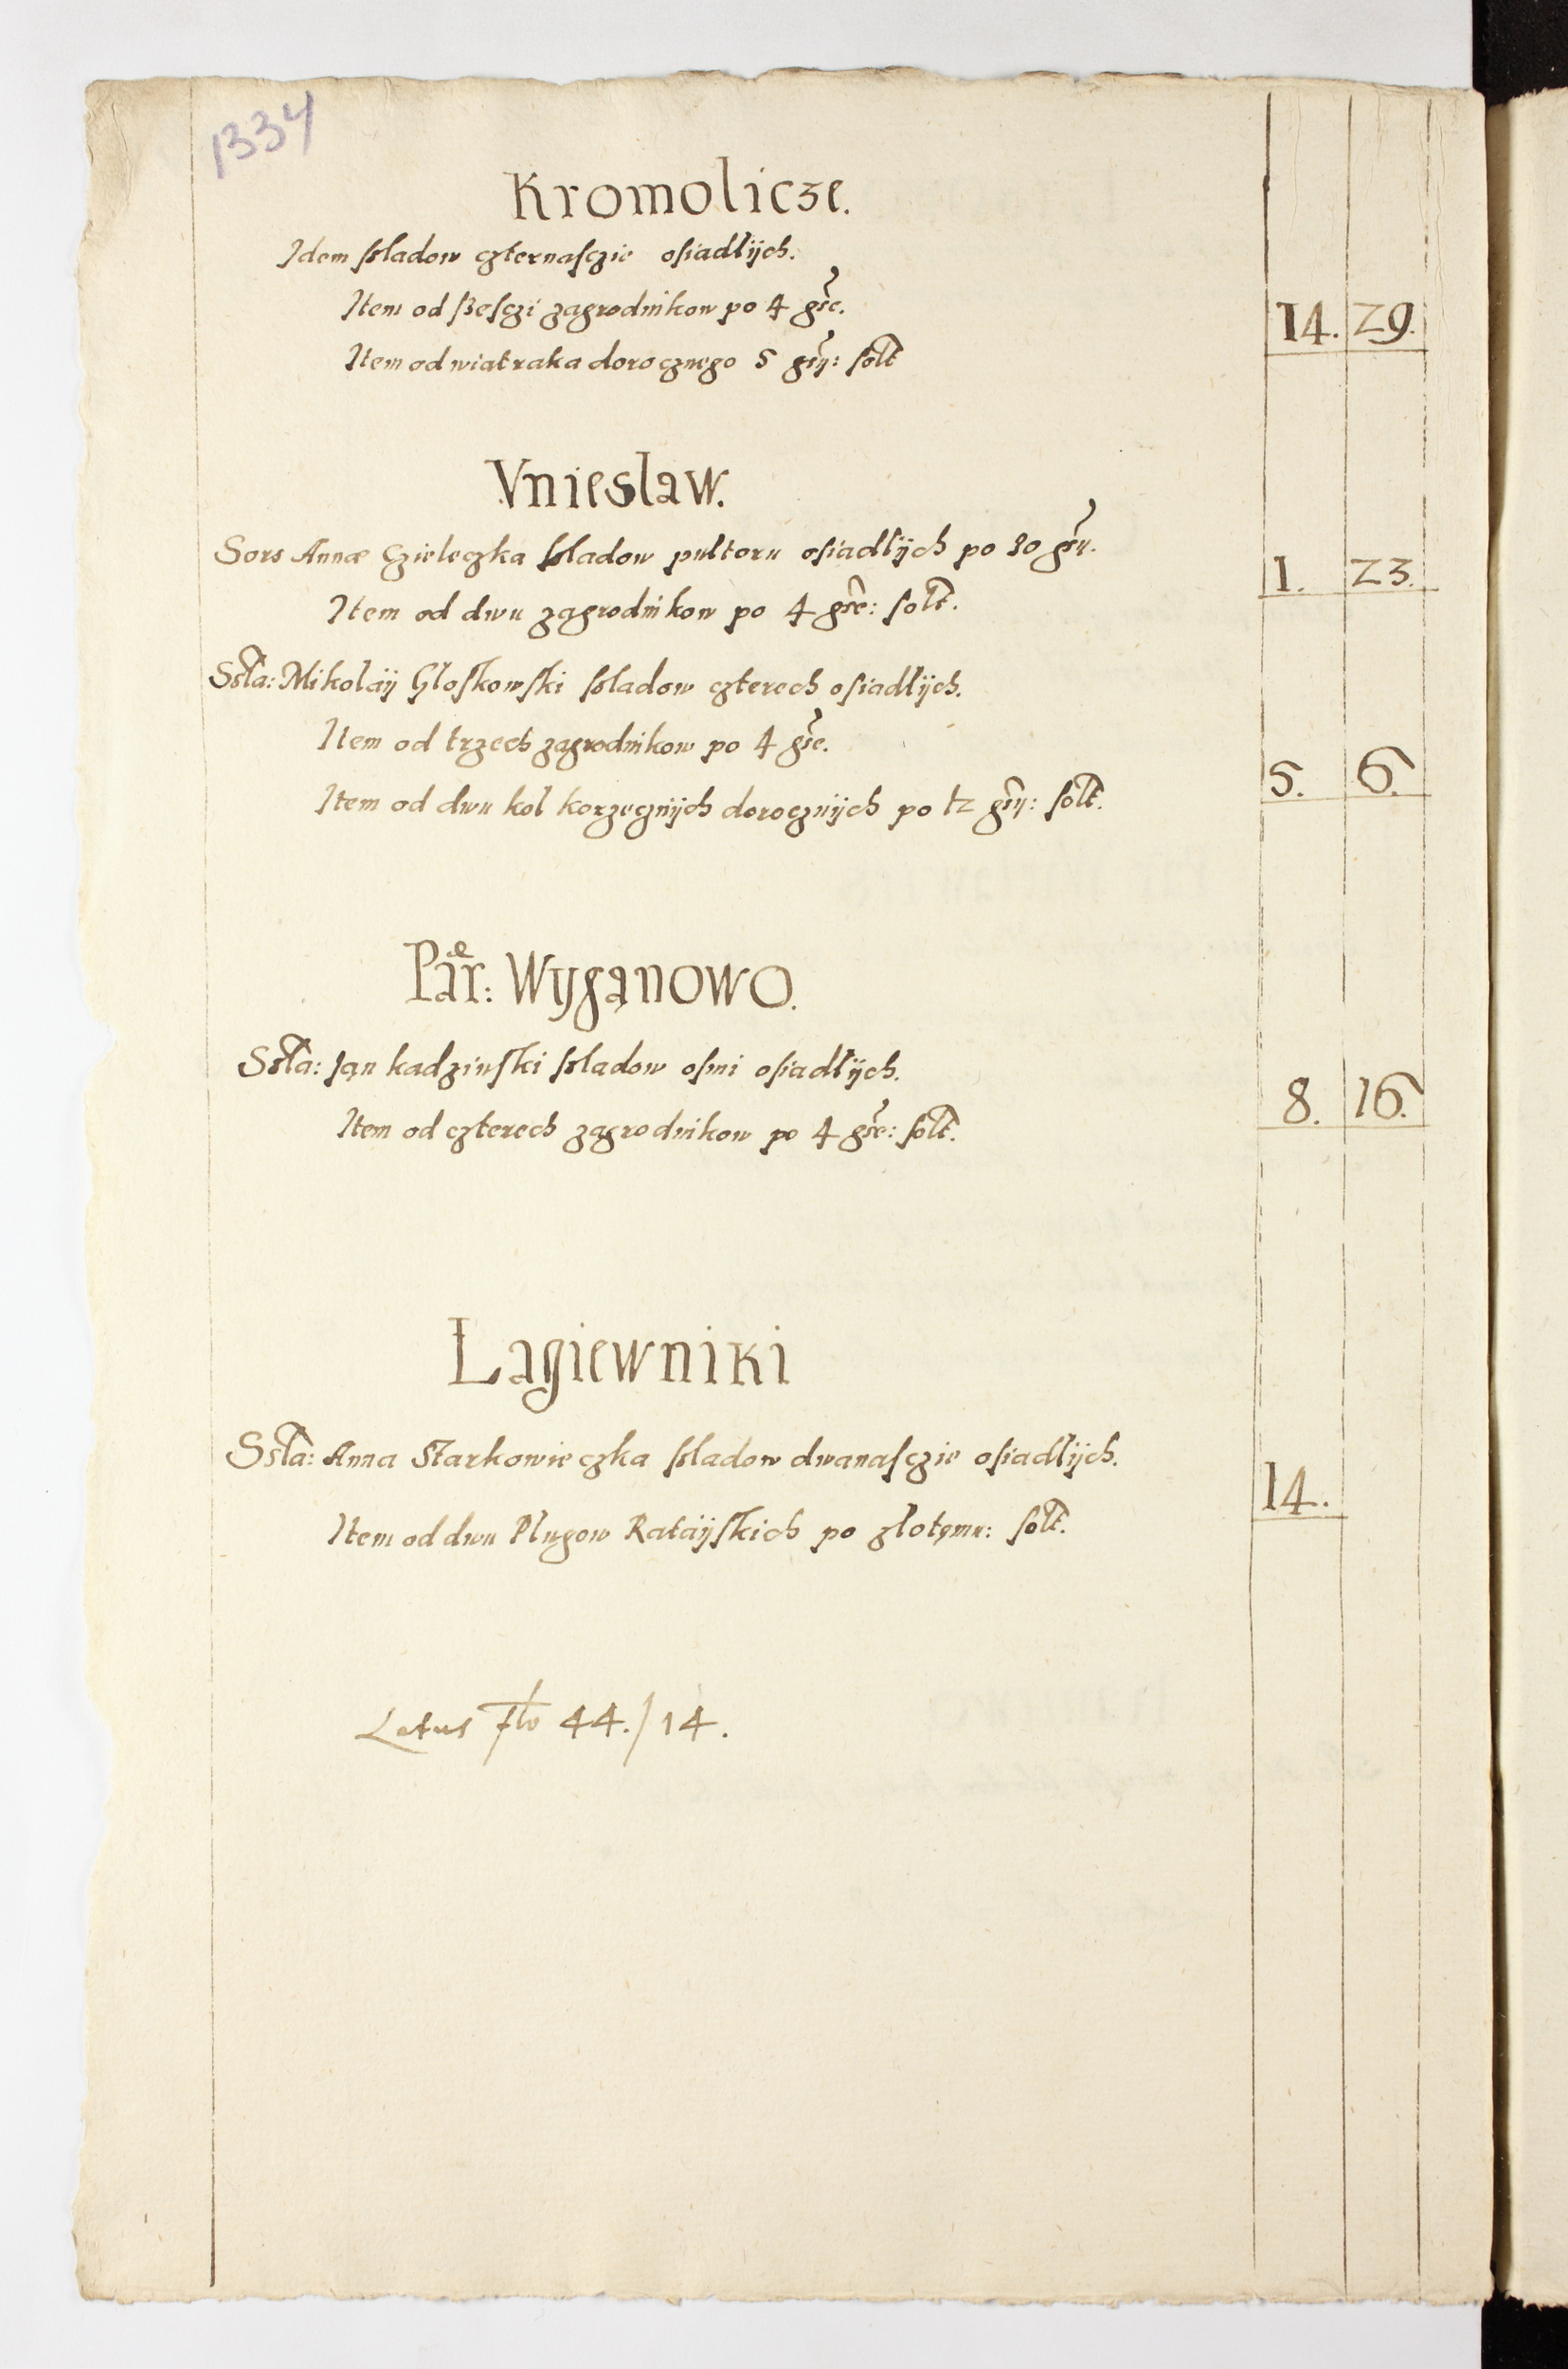 1334
Kromolicze.
Idem sladow czternasczie osiadlÿch.
Item od szesczi zagrodnikow po 4 gře.
14. 29.
Item od wiatraka dorocznego 5 grÿ: solt
Vnieslaw.
Sors Annæ Czieleczka sladow pultoru osiadlÿch po 30 gru.
1. 23.
Item od dwu zagrodnikow po 4 gře: solt.
Ssła: Mikolaÿ Gloskowski sladow czterech osiadlÿch.
Item od trzech zagrodnikow po 4 gře.
5. 6.
Item od dwu kol korzecznÿch dorocznÿch po 12 grÿ: solt.
Par: Wyganowo.
Ssła: Jan kadzinski sladow osmi osiadlÿch.
8. 16.
Item od czterech zagrodnikow po 4 gře: solt.
Lagiewniki
Ssła: Anna Starkowieczka sladow dwanasczie osiadlÿch.
14.
Item od dwu Plugow Rataÿskich po złotemu: solt.
Latus flo 44./14.